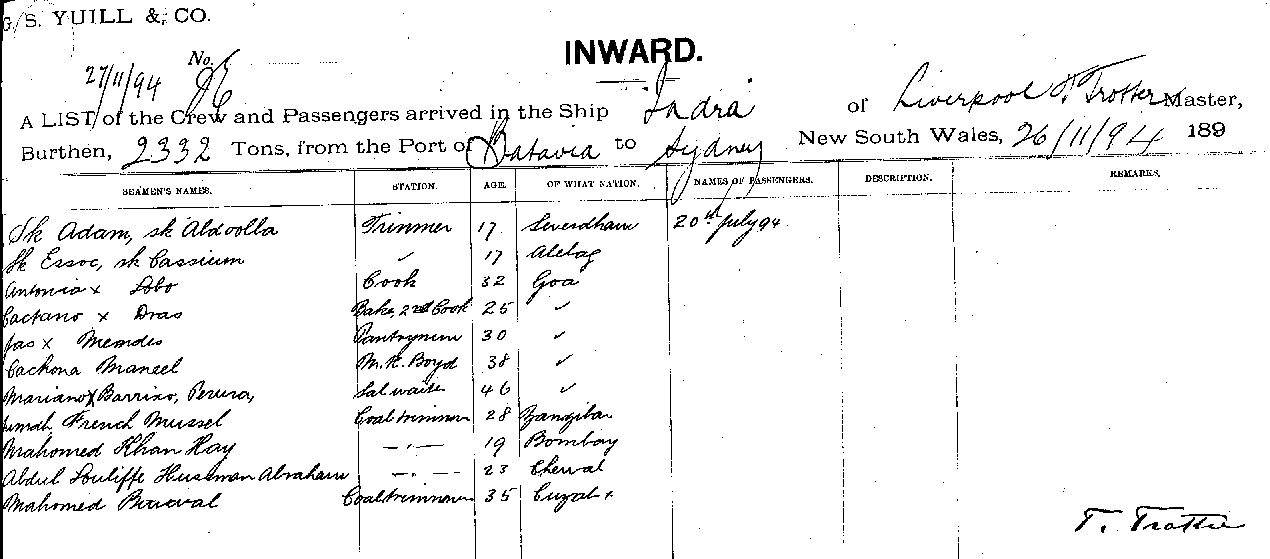 G. S. YUILL & CO.
INWARD.
27/11/94 No.
A LIST of the Crew and Passengers arrived in the Ship Indra of Liverpool T Trotter Master,
Burthen, 2332 Tons, from the Port of Batavia to Sydney New South Wales, 26/11/94 189
SEAMEN'S NAMES. STATION. AGE. OF WHAT NATION. NAMES OF PASSENGERS. DESCRIPTION. REMARKS.
Sk Adam, sk Aldoolla Trimmer 17 Severdharn 20th July 94
Sk Essoc, sk Cassium ✓ 17 Alebag
Antonia x Lobo Cook 32 Goa
Caetano x Dias Baker, 2nd Cook 25 ✓
Jas x Memdes Pantrymen 30 ✓
Cachona Maneel M. R. Boyd 38 ✓
Mariano x Barrino, Perura, Sal waiter 46 ✓
French Mussel Coal trimmer 28 Zanzibar
Mahomed Khan Hay —"— 19 Bombay
Abdul Louliffe Husseman Abraham —"— 23 Cherval
Mahomed Coaltrimmer 35
T. Trotter